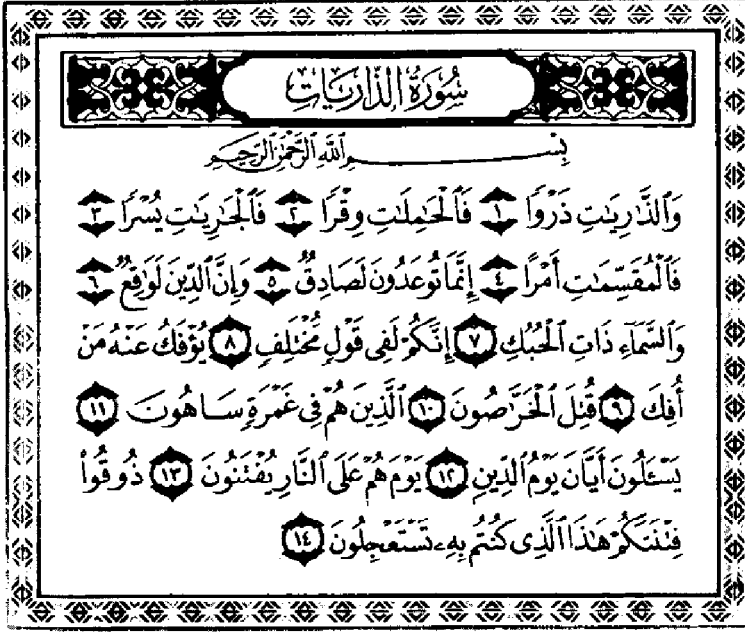 سُورَةُ الذَّارِيَاتِ
بِسْمِ ٱللَّهِ ٱلرَّحْمَٰنِ ٱلرَّحِيمِ
وَٱلذَّٰرِيَٰتِ ذَرْوًا ١ فَٱلْحَٰمِلَٰتِ وِقْرًا ٢ فَٱلْجَٰرِيَٰتِ يُسْرًا ٣
فَٱلْمُقَسِّمَٰتِ أَمْرًا ٤ إِنَّمَا تُوعَدُونَ لَصَادِقٌ ٥ وَإِنَّ ٱلدِّينَ لَوَٰقِعٌ ٦
وَٱلسَّمَآءِ ذَاتِ ٱلْحُبُكِ ٧ إِنَّكُمْ لَفِى قَوْلٍ مُّخْتَلِفٍ ٨ يُؤْفَكُ عَنْهُ مَنْ
أُفِكَ ٩ قُتِلَ ٱلْخَرَّٰصُونَ ١٠ ٱلَّذِينَ هُمْ فِى غَمْرَةٍ سَاهُونَ ١١
يَسْـَٔلُونَ أَيَّانَ يَوْمُ ٱلدِّينِ ١٢ يَوْمَ هُمْ عَلَى ٱلنَّارِ يُفْتَنُونَ ١٣ ذُوقُوا۟
فِتْنَتَكُمْ هَٰذَا ٱلَّذِى كُنتُم بِهِۦ تَسْتَعْجِلُونَ ١٤